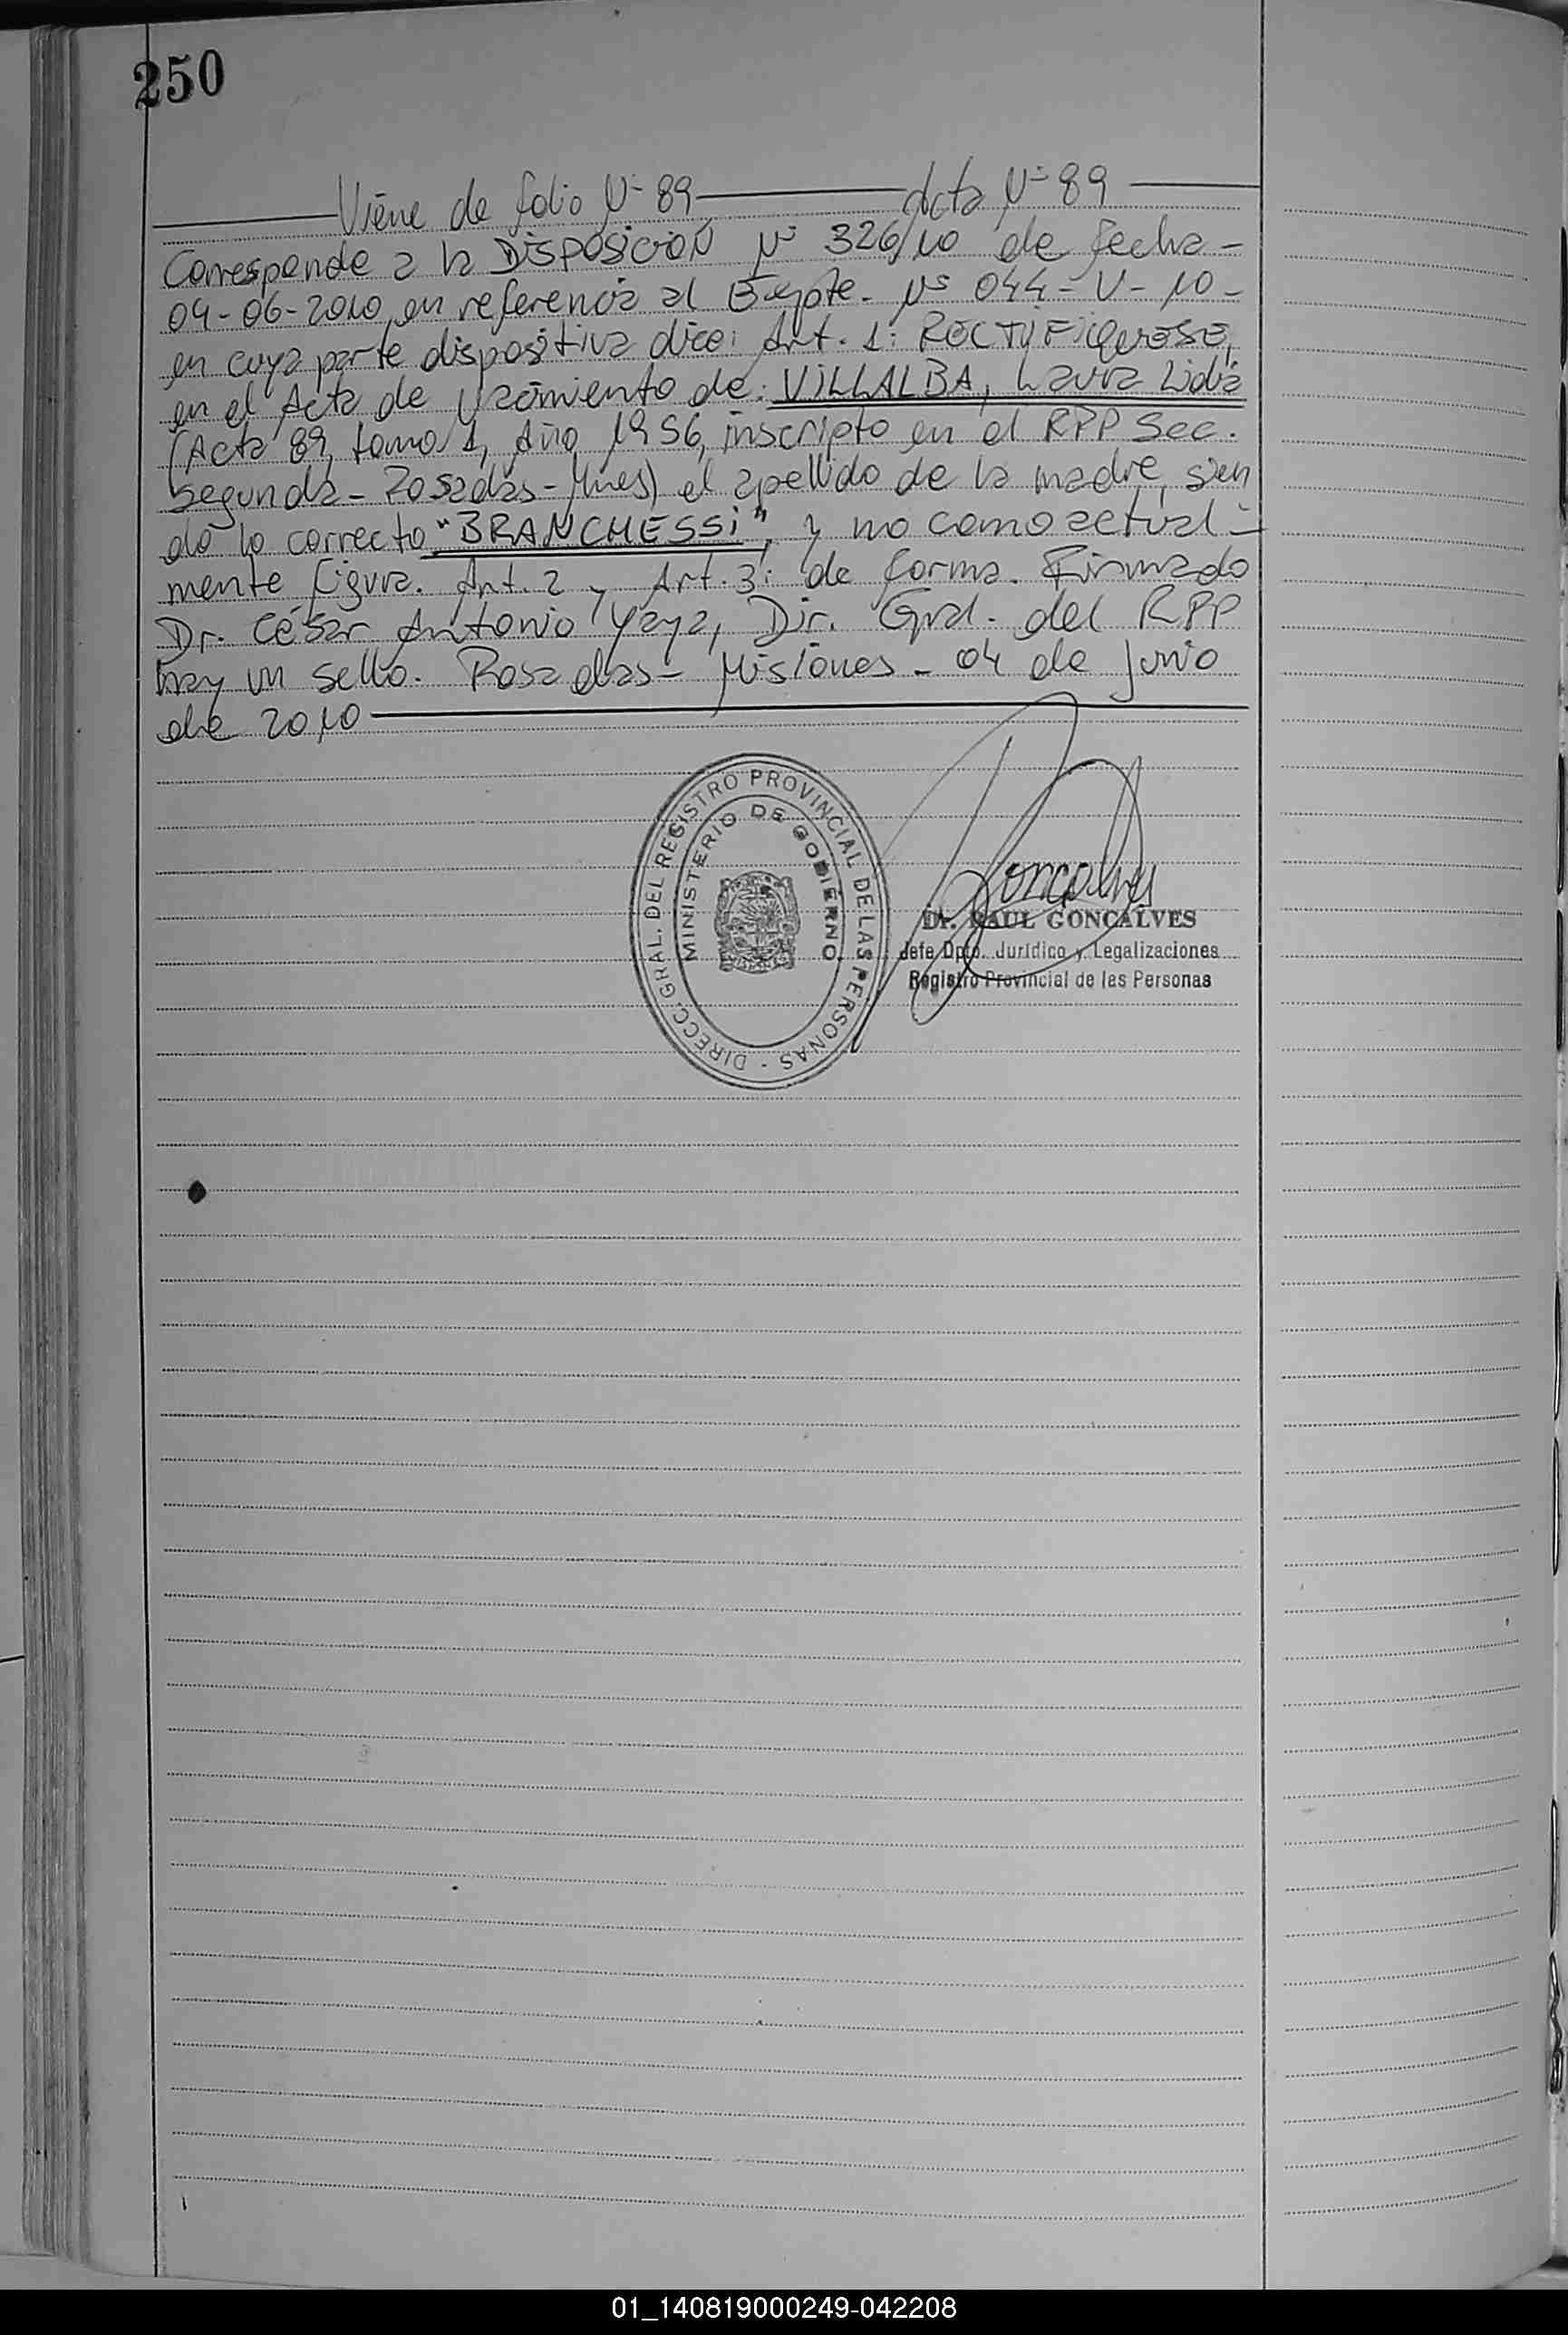 250
Viene de folio Nº 89 Acta Nº 89
Corresponde a la DISPOSICIÓN Nº 326/10 de fecha -
04-06-2010, en referencia al Expte. Nº 044-V-10-
en cuya parte dispositiva dice: Art. 1: RECTIFÍQUESE,
en el Acta de Nacimiento de: VILLALBA, Laura Lidia
(Acta 89, tomo 1, Año 1956, inscripto en el RPP Sec.
Segunda - Posadas - Mnes) el apellido de la madre, sien
do lo correcto "BRANCHESSI", y no como actual -
mente figura. Art. 2 y Art. 3: de forma. Firmado
Dr. César Antonio Yaya, Dir. Gral. del RPP
hay un sello. Posadas - Misiones - 04 de junio
de 2010
DIRECC. GRAL. DEL REGISTRO PROVINCIAL DE LAS PERSONAS -
MINISTERIO DE GOBIERNO
Goncalves
Dr. RAUL GONCALVES
Jefe Dpto. Jurídico y Legalizaciones
Registro Provincial de las Personas
01_140819000249-042208